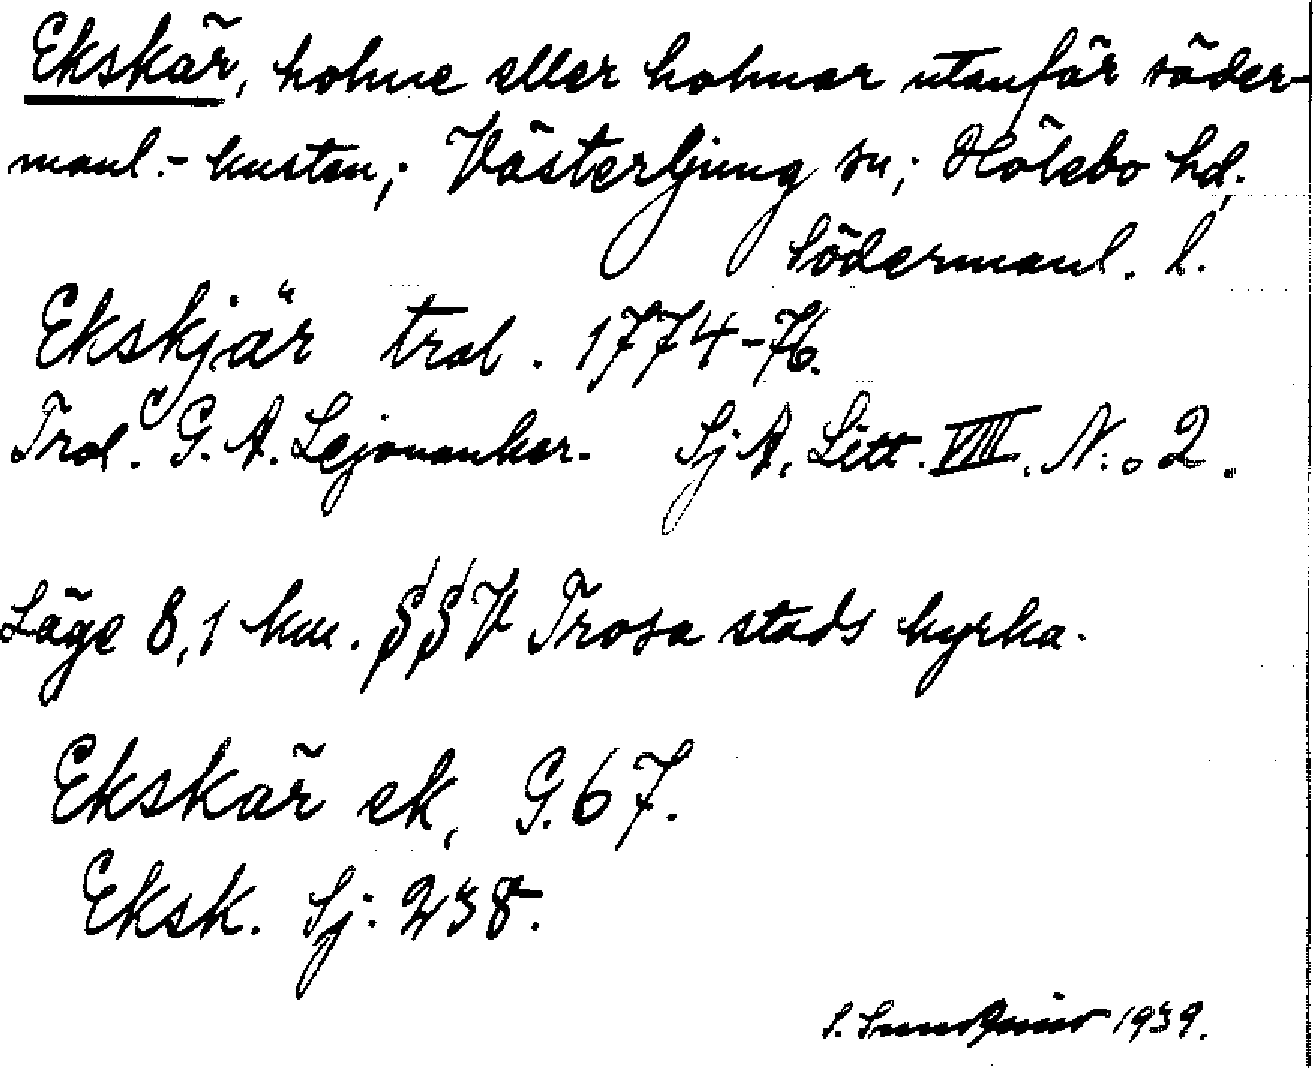 Ekskär, holme eller holmar utanför söder-
manl.- kusten; Västerljung sn; Hölebo hd,
Södermanl. l.
Ekskjär trol. 1774-76.
Trol. C. G. A. Lejonanker. SjA, Litt. VIII. N:o 2.
Läge 8,1 km. SSV Trosa stads kyrka.
Ekskär ek, G. 67.
Eksk. Sj: 238.
S. 1939.